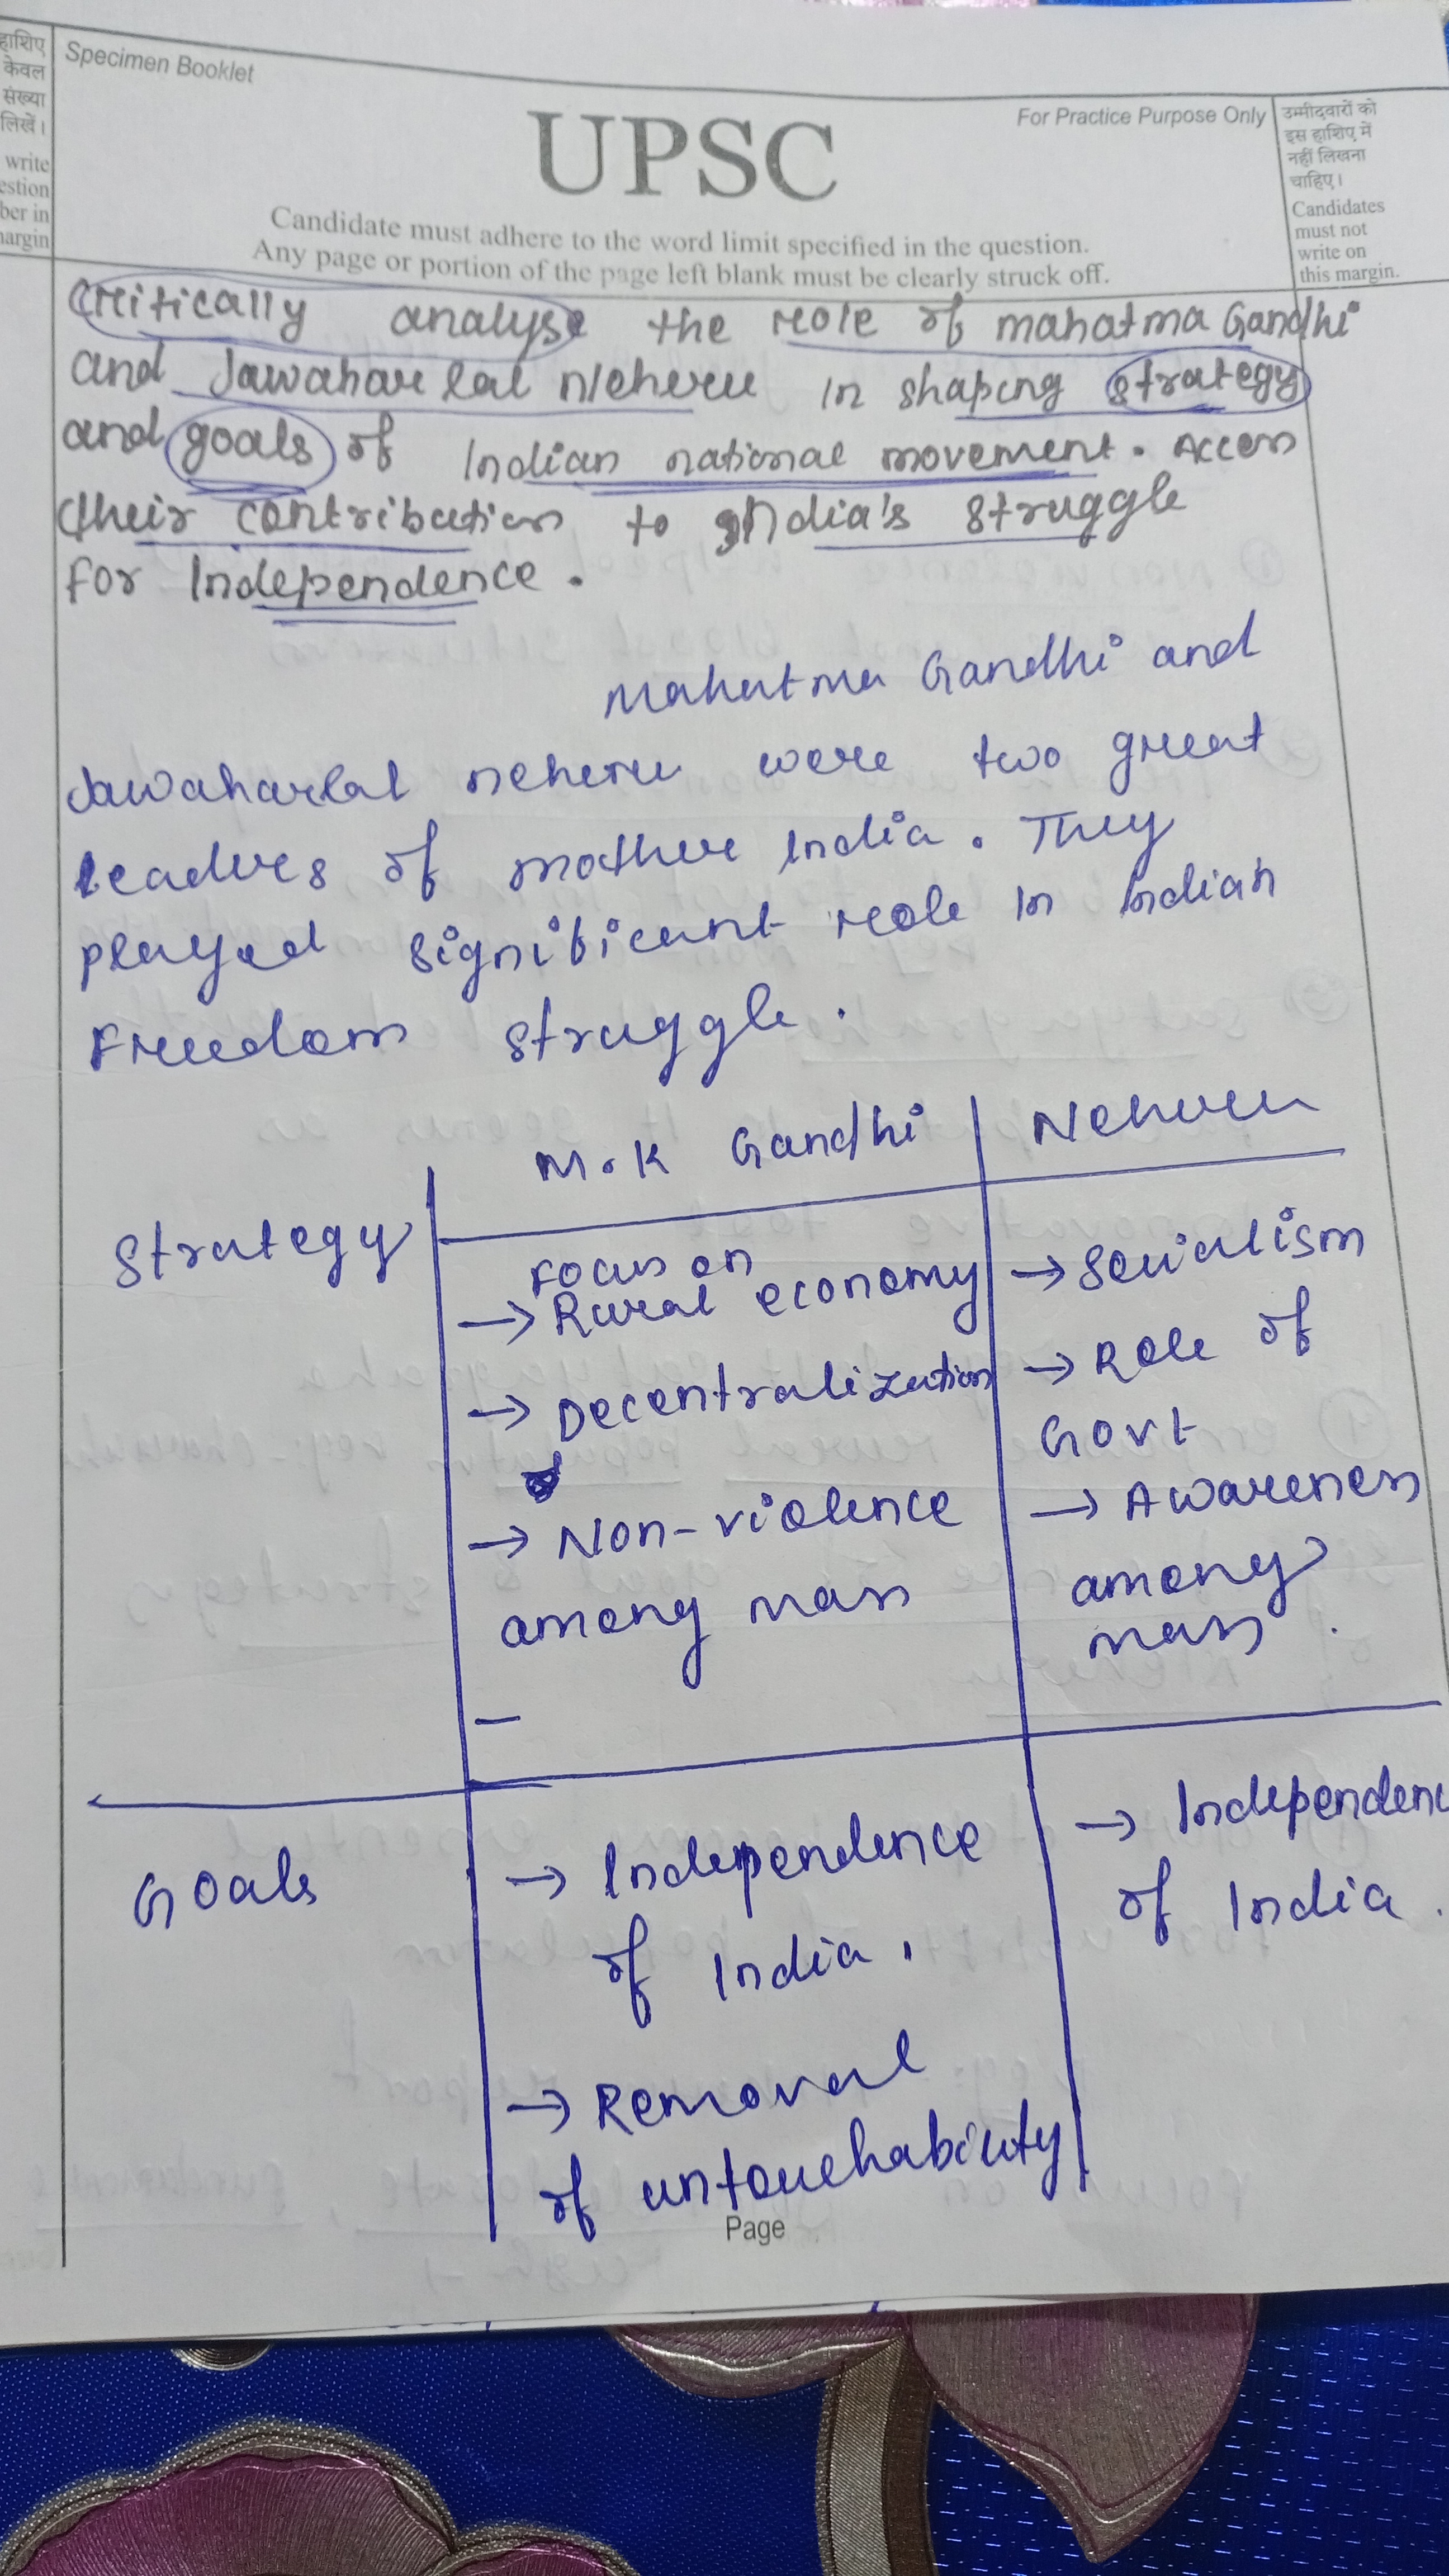 हाशिए
केवल
संख्या
लिखें।
write
estion
ber in
margin
Specimen Booklet
UPSC
For Practice Purpose Only
Candidate must adhere to the word limit specified in the question.
Any page or portion of the page left blank must be clearly struck off.
उम्मीदवारों को
इस हाशिए में
नहीं लिखना
चाहिए।
Candidates
must not
write on
this margin.
Critically analyse the role of mahatma Gandhi
and Jawahar lal Nehru in shaping strategy
and goals of Indian national movement. Access
their contribution to India's struggle
for Independence.
Mahatma Gandhi and
Jawaharlal nehru were two great
leaders of mother India. They
played significant role in Indian
Freedom struggle.
M.K Gandhi
Nehru
Strategy
Focus on
→ Rural economy
→ Decentralization
→ Non-violence
among mass
–
→ Socialism
→ Role of
Govt
→ Awareness
among
mass.
Goals
→ Independence
of India.
→ Removal
of untouchability
→ Independenc
of India.
Page